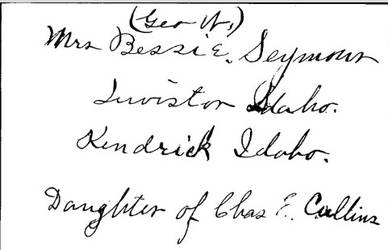 (Geo W.)
Mrs Bessie E. Seymour
Lewiston Idaho.
Kendrick Idaho.
Daughter of Chas E. Collins